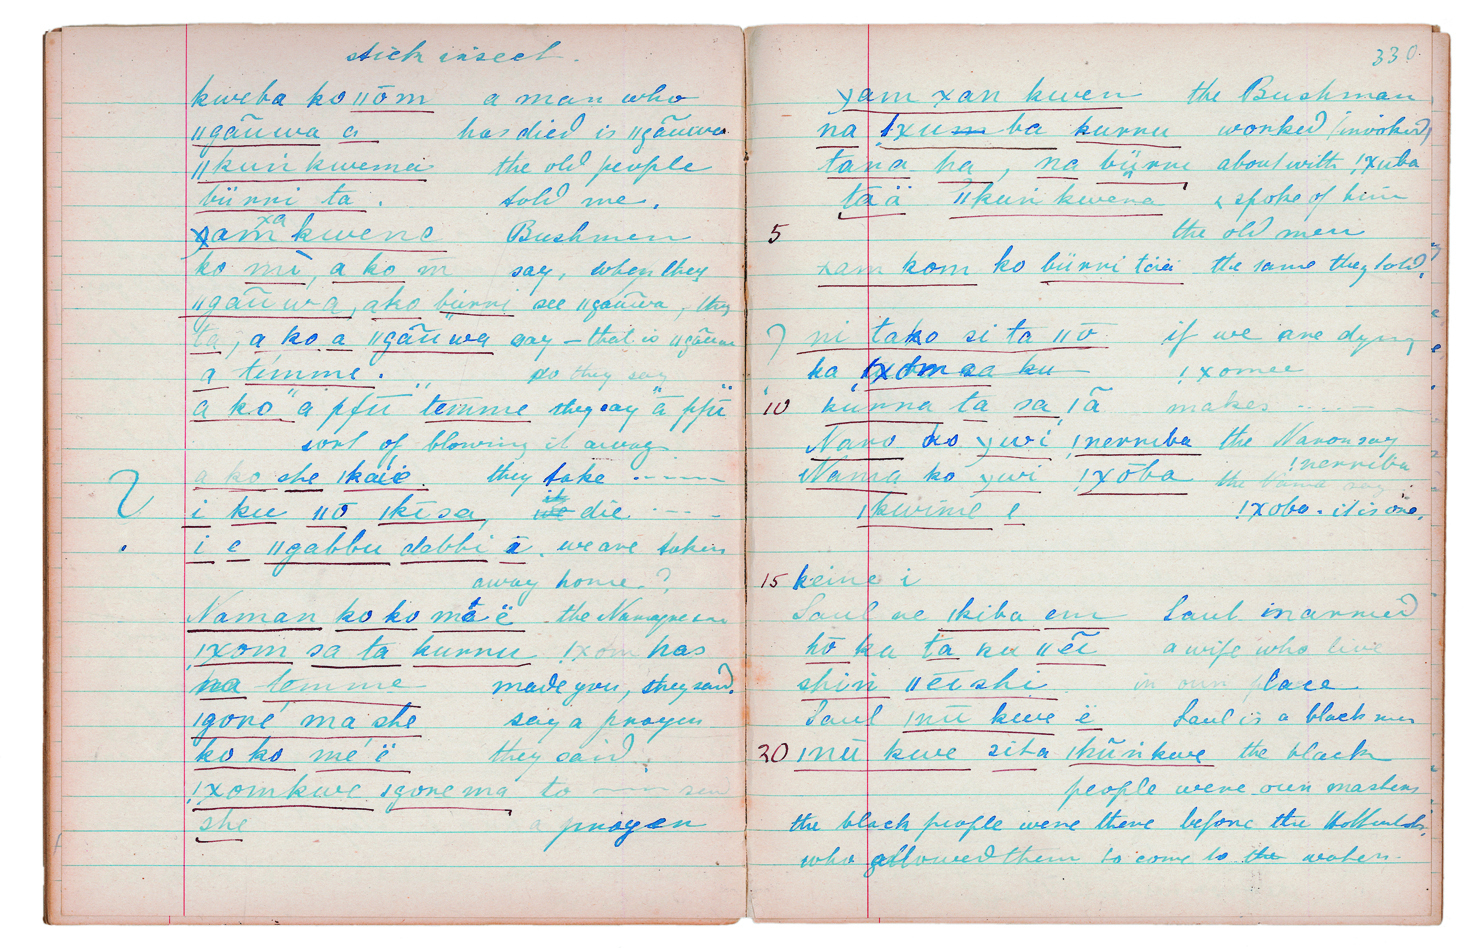 stick insect.
kweba ko ǁōm a man who
ǁgãuwa a has died is ǁgãuwa
ǁkuŕi kwema the old people
büri ta. told me.
xa
kwene Bushmen
ko mĩ, a ko m̄ say, when they
ǁgãuwa, ako bürri see ǁgãuwa, they
ta, a ko a ǁgãuwa say – that is ǁgãuwa
a temme. so they say
a ko "a pfū" temme they say "a pfū"
sort of blowing it away
a ko she ǀkaïe. they take
i ku ǁō ǀkisa, it die
i e ǁgabbu dabbi ā. we are taken
away home?
Naman ko ko má ë the Namaqua
ǃxom sa ta kurru ǃxom has
ha temme made you, they said.
ǀgoré ma she say a prayer
ko ko mé ë they said
ǃxomkwe ǀgore ma to
she a prayer
330
xam xan kwen the Bushman
na ǃxu ba kurru worked (invoked)
tana ha, na bürri about with ǃxuba
ta ä ǁkuŕi kwena & spoke of him
5 the old men
xam kom ko bürri tää the same they told.
? ni tako si ta ǁō if we are dying
ka ǃxom sa ku ǃxomee
10 kurna ta sa ǀã makes
Naro ko ywi ǃnerriba the Naron say
ǃnerriba
Nama ko ywi ǃxōba the Nama say
ǀkwime e ǃxoba. it is one.
15 keine i
Saul ne ǀkiba em Saul married
hō ku ta ku ǁẽi a wife who live
shiń ǁẽishi in our place
Saul ǀnū kwe ë Saul is a black man
20 ǀnū kwe sita ǀkũńkwe the black
people were our masters
the black people were there before the
who allowed them to come to the waters.